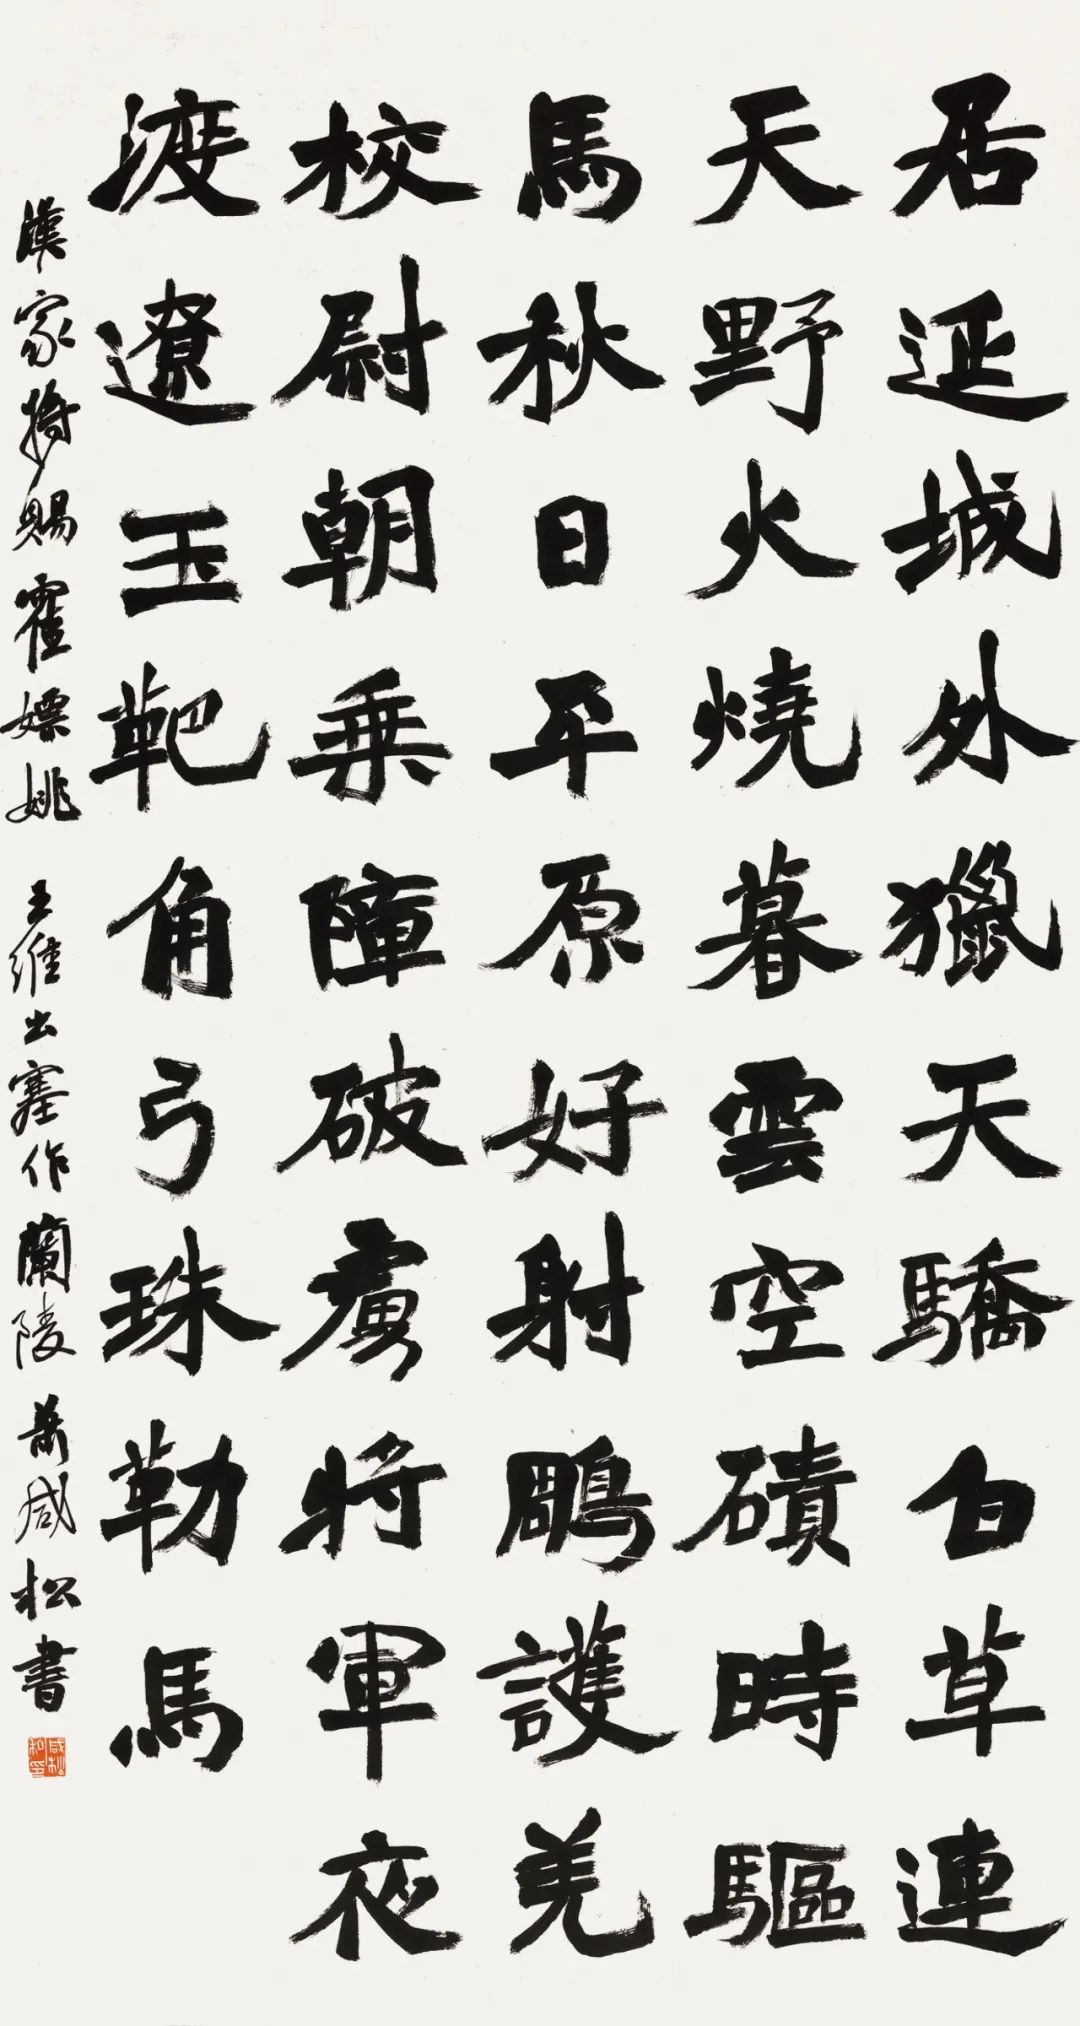 居延城外獵天驕白草連
天野火燒暮雲空磧時驅
馬秋日平原好射鵰護羌
校尉朝乗障破虜將軍夜
渡遼玉靶角弓珠勒馬
漢家將賜霍嫖姚 王維出塞作 蘭陵蕭咸松書
咸松和印